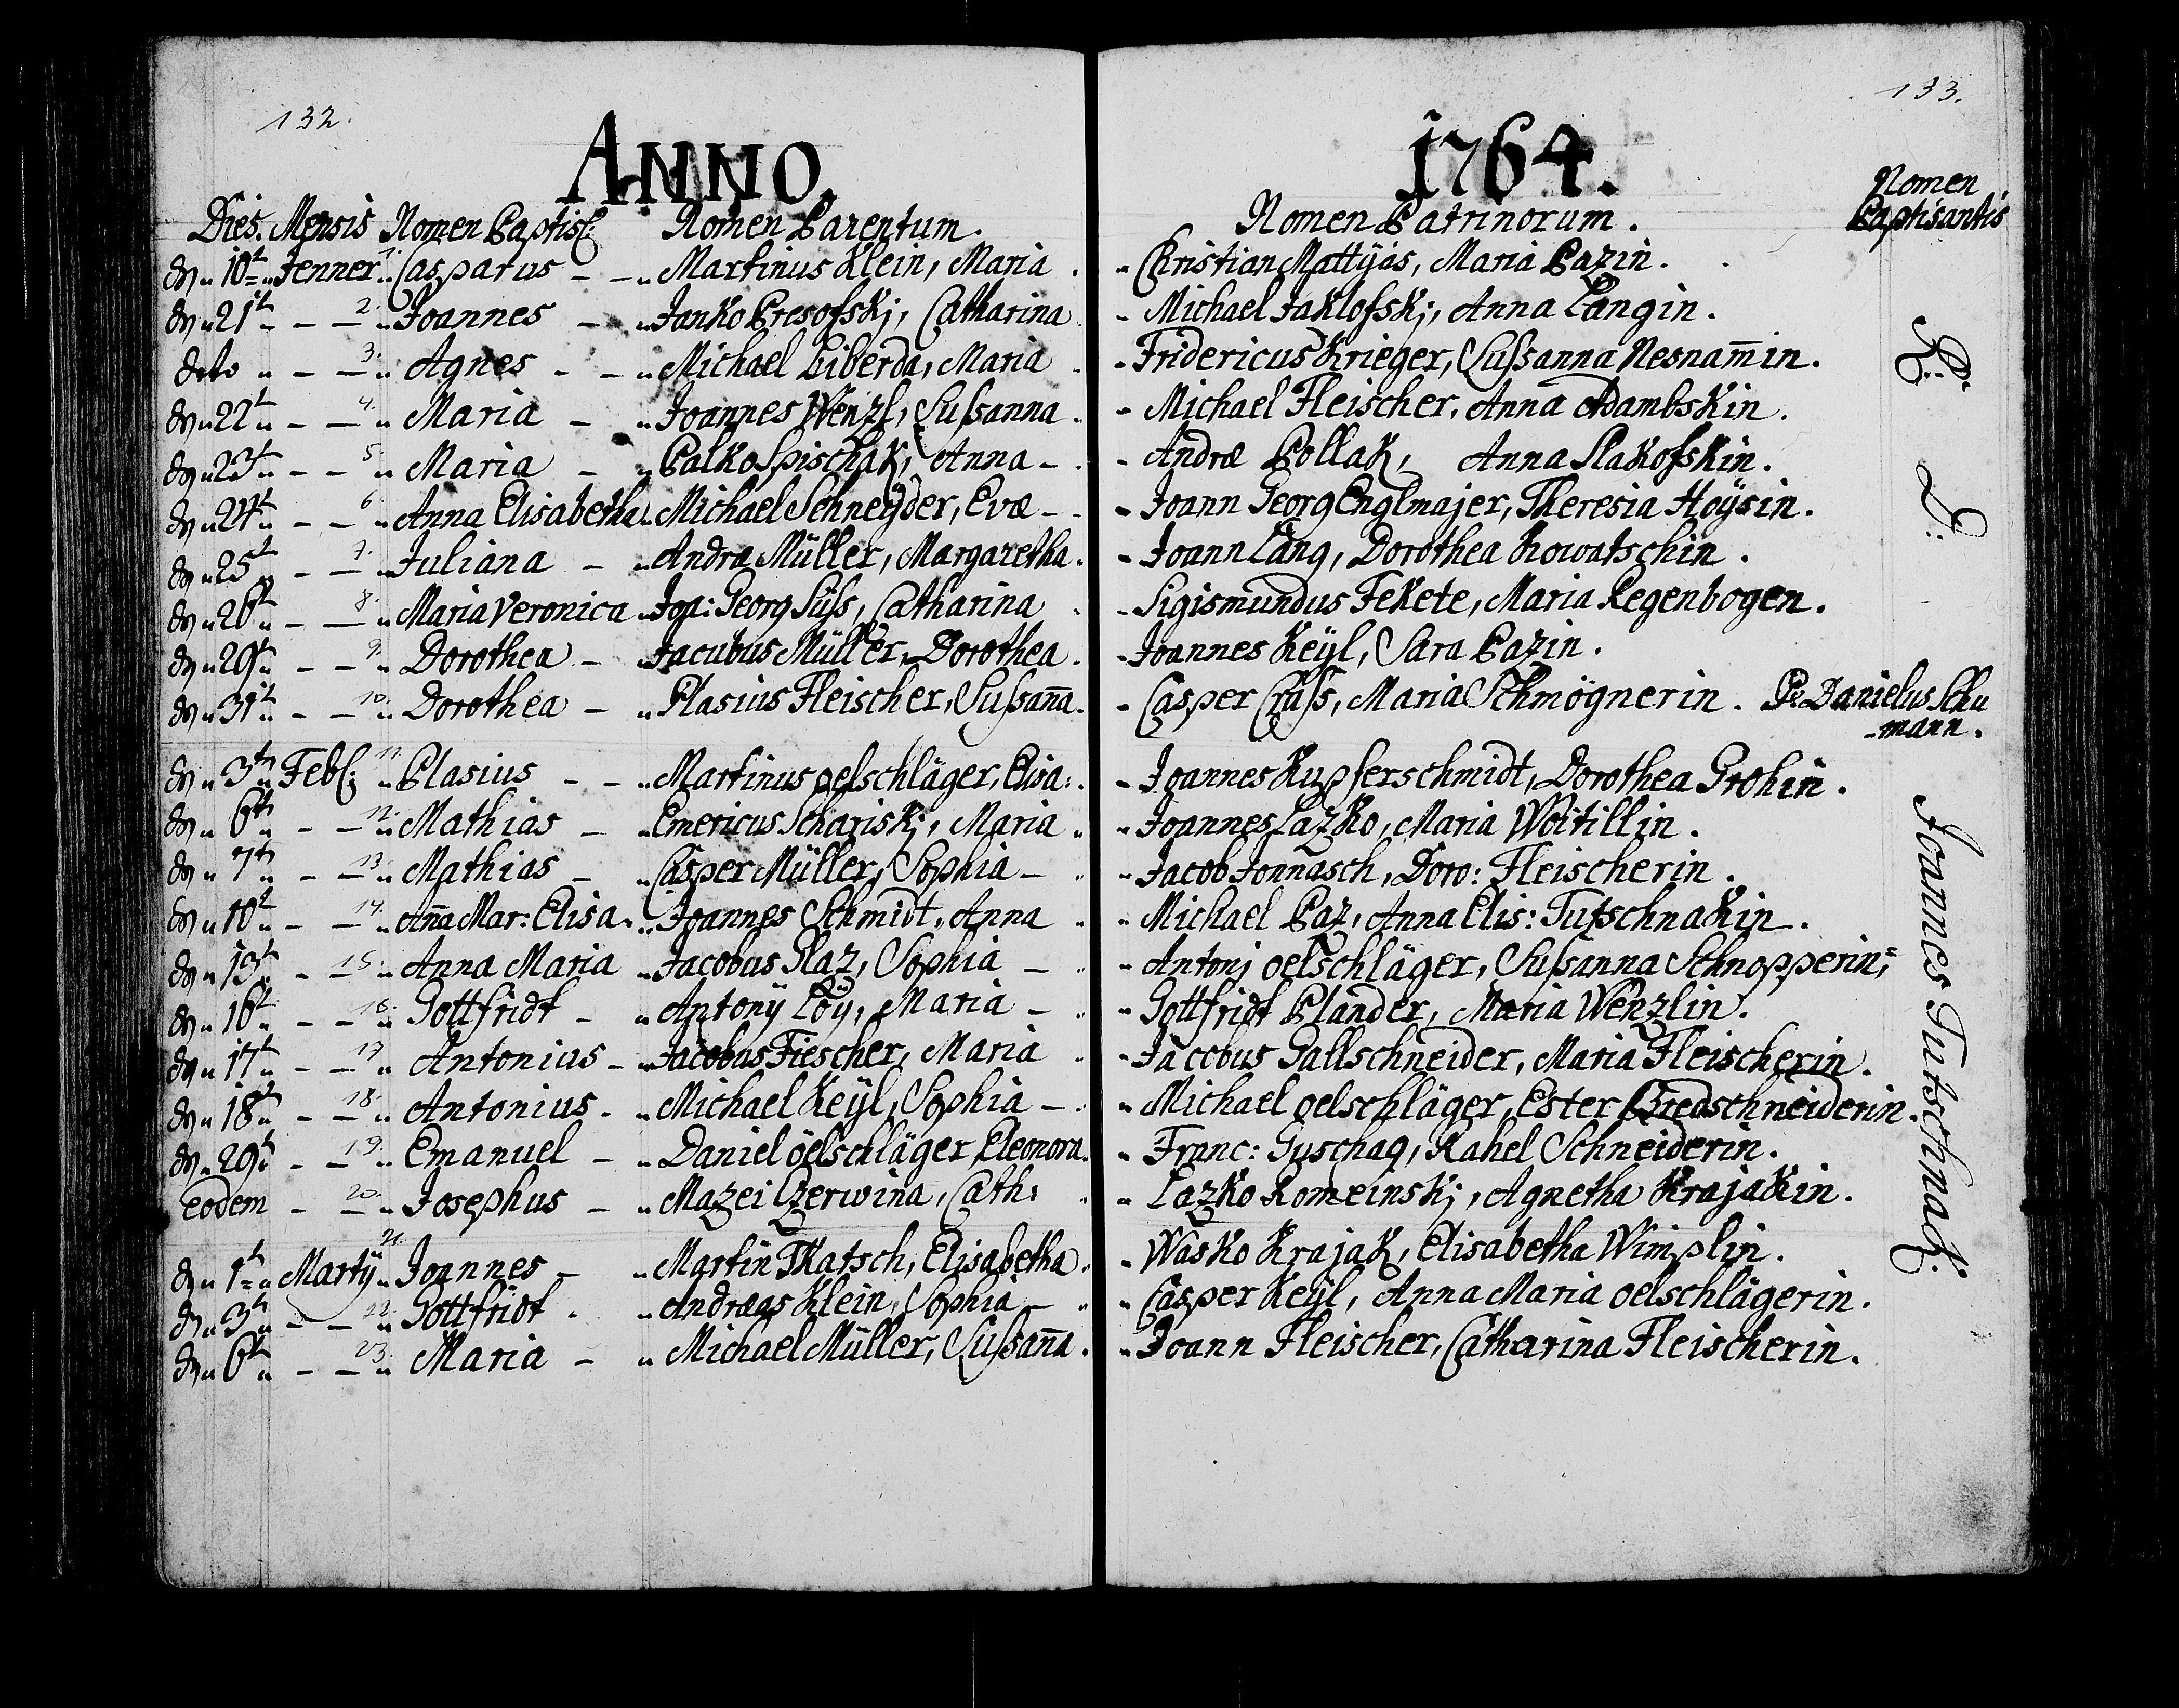 132.
133.
ANNO.
1764.
Dies. Mensis Nomen Baptis: Nomen Parentum. Nomen Patrinorum. Nomen Baptisantis
dn 10t Jenner 1. Casparus Martinus Klein, Maria Christian Mattÿás, Maria Pazin.
dn 21t 2. Joannes Janko Presofskj, Catharina Michael Jaklofskj, Anna Langin.
deto 3. Agnes Michael Liberda, Maria Fridericus Krieger, Sussanna Nesnam̄in.
dn 22t 4. Maria Joannes Wenzl, Sussanna Michael Fleischer, Anna Adambskin.
dn 23t 5. Maria Palko Spischak, Anna Andræ Pollak, Anna Slakofskin.
dn 24t 6. Anna Elisabetha Michael Schneÿder, Evæ Joann Georg Englmajer, Theresia Hoÿsin.
dn 25t 7. Juliana Andræ Müller, Margaretha Joann Lang, Dorothea Kowatschin.
dn 26t 8. Maria Veronica Joa: Georg Süss, Catharina Sigismundus Fekete, Maria Regenbogen.
dn 29t 9. Dorothea Jacubus Müller, Dorothea Joannes Keÿl, Sara Pazin.
dn 31t 10. Dorothea Plasius Fleischer, Sussan̄a Casper Crass, Maria Schmögnerin. P. Danielus Schu
mann.
dn 3t Feb: 11. Plasius Martinus oelschläger, Elisa: Joannes Kupferschmidt, Dorothea Grohin.
dn 6t 12. Mathias Emericus Schariskj, Maria Joannes Lazko, Maria Woitillin.
dn 7t 13. Mathias Casper Müller, Sophia Jacob Jonnasch, Doro: Fleischerin.
dn 10t 14. An̄a Mar: Elisa Joannes Schmidt, Anna Michael Paz, Anna Elis: Tutschnakin.
dn 15. Anna Maria Jacobus Slaz, Sophia Antonj oelschläger, Susanna Schnopperin;
dn 16t 16. Gottfridt Antonÿ Loÿ, Maria Gottfridt Plander, Maria Wenzlin.
dn 17t 17. Antonius Jacobus Fiescher, Maria Jacobus Gallschneider, Maria Fleischerin.
dn 18t 18. Antonius Michael Keÿl, Sophia Michael oelschläger, Ester Bredschneiderin.
dn 29t 19. Emanuel Daniel öelschläger, Eleonora Franc: Guschaq, Rahel Schneiderin.
eodem 20. Josephus Mazei Czerwina, Cath: Lazko Romeinskj, Agnetha Krajakin.
dn 1t Martÿ 21. Joannes Martin Tkatsch, Elisabetha Wasko Krajak, Elisabetha Wimplin.
dn 3t 22. Gottfridt Andræas Klein, Sophia Casper Keÿl, Anna Maria oelschlägerin.
dn 6t 23. Maria Michael Müller, Sussan̄a Joann Fleischer, Catharina Fleischerin.
R: P: Joannes Tutschnak